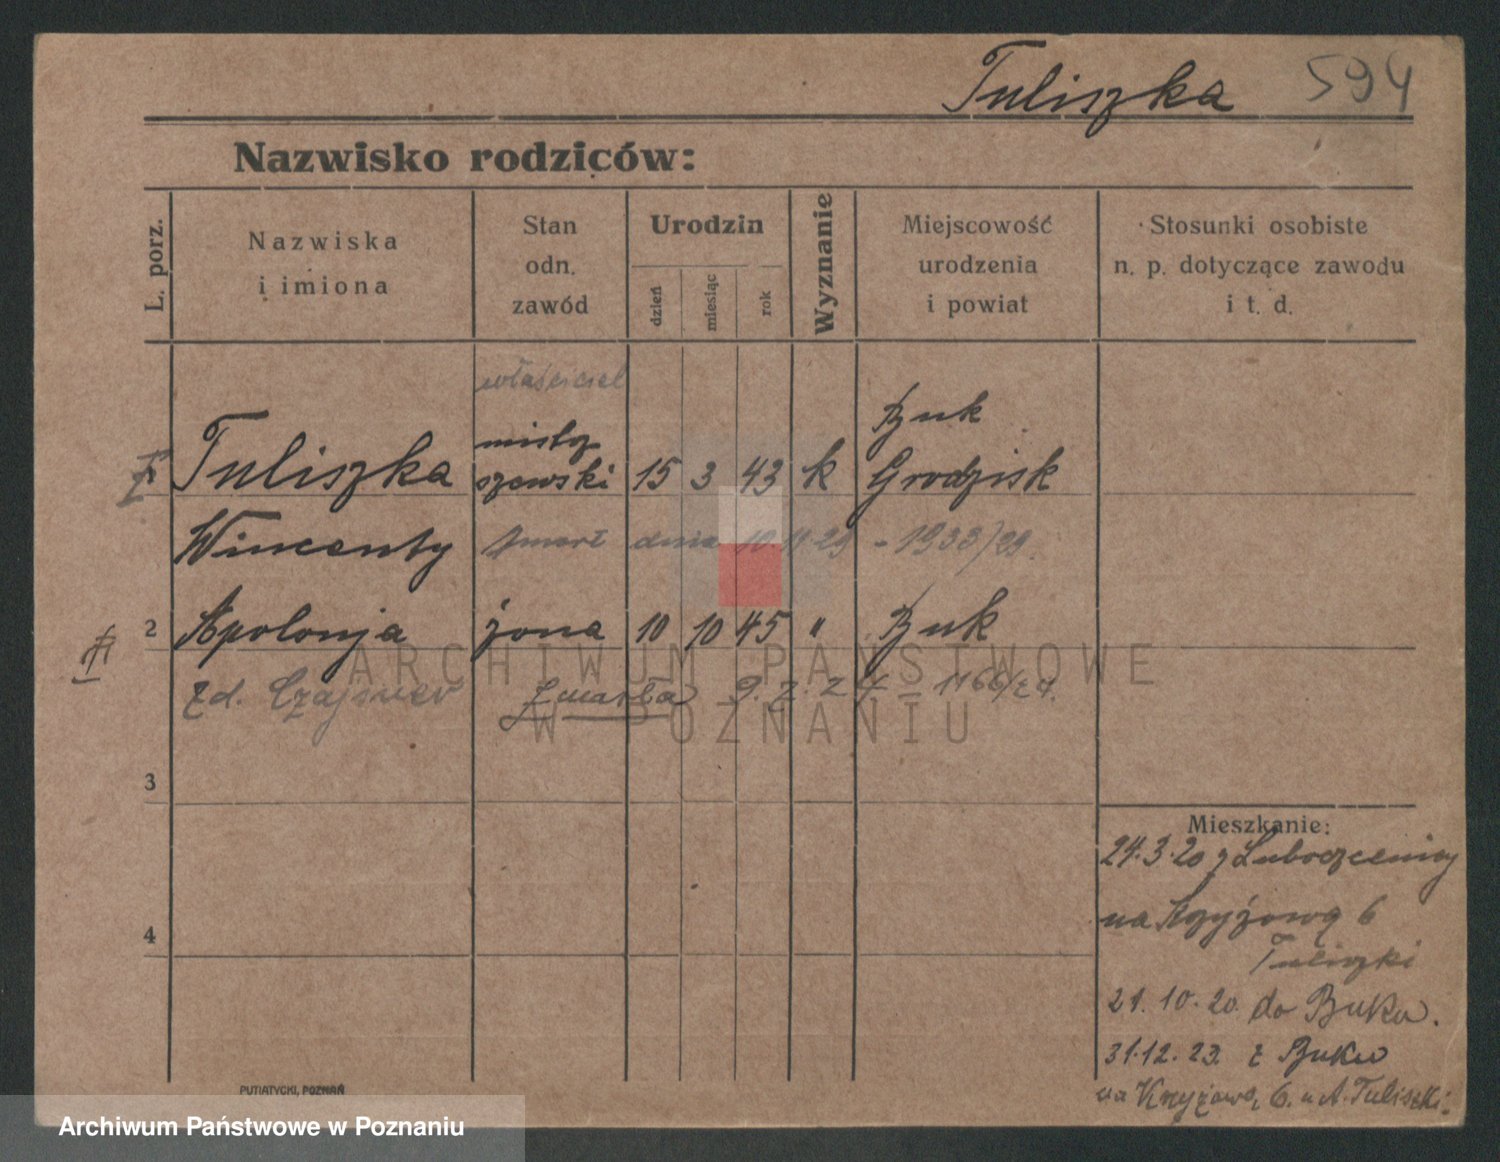 Tuliszka 594
Nazwisko rodziców:
L. porz.
Nazwiska
i imiona
Stan
odn.
zawód
Urodzin
dzień
miesiąc
rok
Wyznanie
Miejscowość
urodzenia
i powiat
Stosunki osobiste
n. p. dotyczące zawodu
i t. d.
właściciel
Buk
Tuliszka szewski 15 3 43 k Grodzisk
Wincenty zmarł dnia 10.11.29 - 1933/29.
2 Apolonja żona 10 10 45 " Buk
zd. Czajsner Zmarła 9. 2. 24 - 1166/24.
ARCHIWUM PAŃSTWOWE
W POZNANIU
3
4
Mieszkanie:
24.3.20 z
na Krzyżową 6
Tuliszki
21.10.20. do Buku.
31.12.23. z Buku
na Krzyżową 6. u A. Tuliszki.
PUTIATYCKI, POZNAŃ
Archiwum Państwowe w Poznaniu